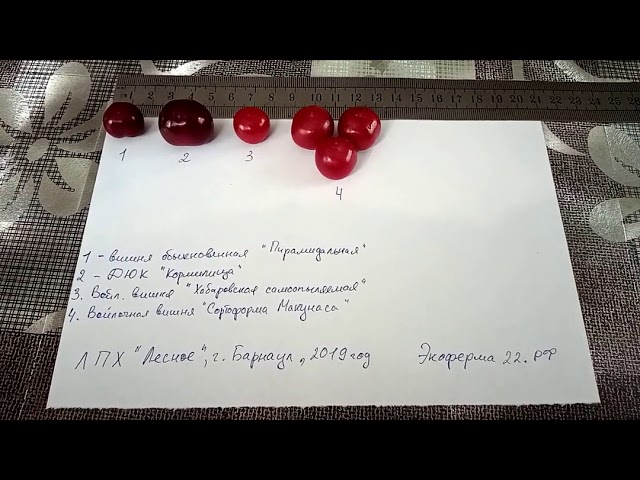 1 2 3 4 5 6 7 8 9 10 11 12 13 14 15 16 17 18 19 20 21 22 23 24 25
1
2
3
4
1 - вишня обыкновенная "Пирамидальная"
2 - ДЮК "Кормилица"
3. Войл. вишня "Хабаровская самоопыляемая"
4. Войлочная вишня "Сортоформа Макунаса"
ЛПХ "Лесное", г. Барнаул, 2019 год
Экоферма 22. РФ